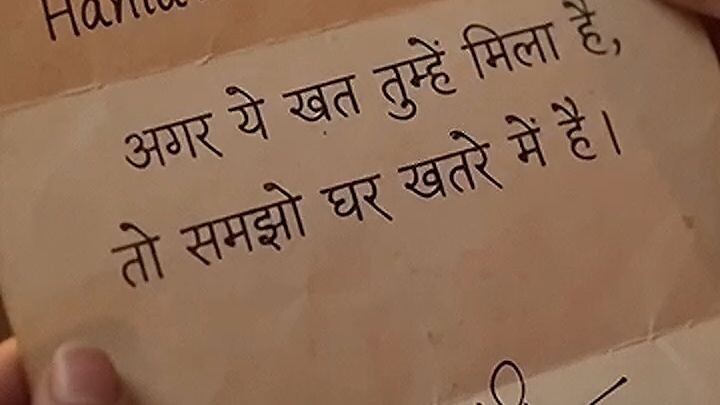 अगर ये खत तुम्हें मिला है,
तो समझो घर खतरे में है।